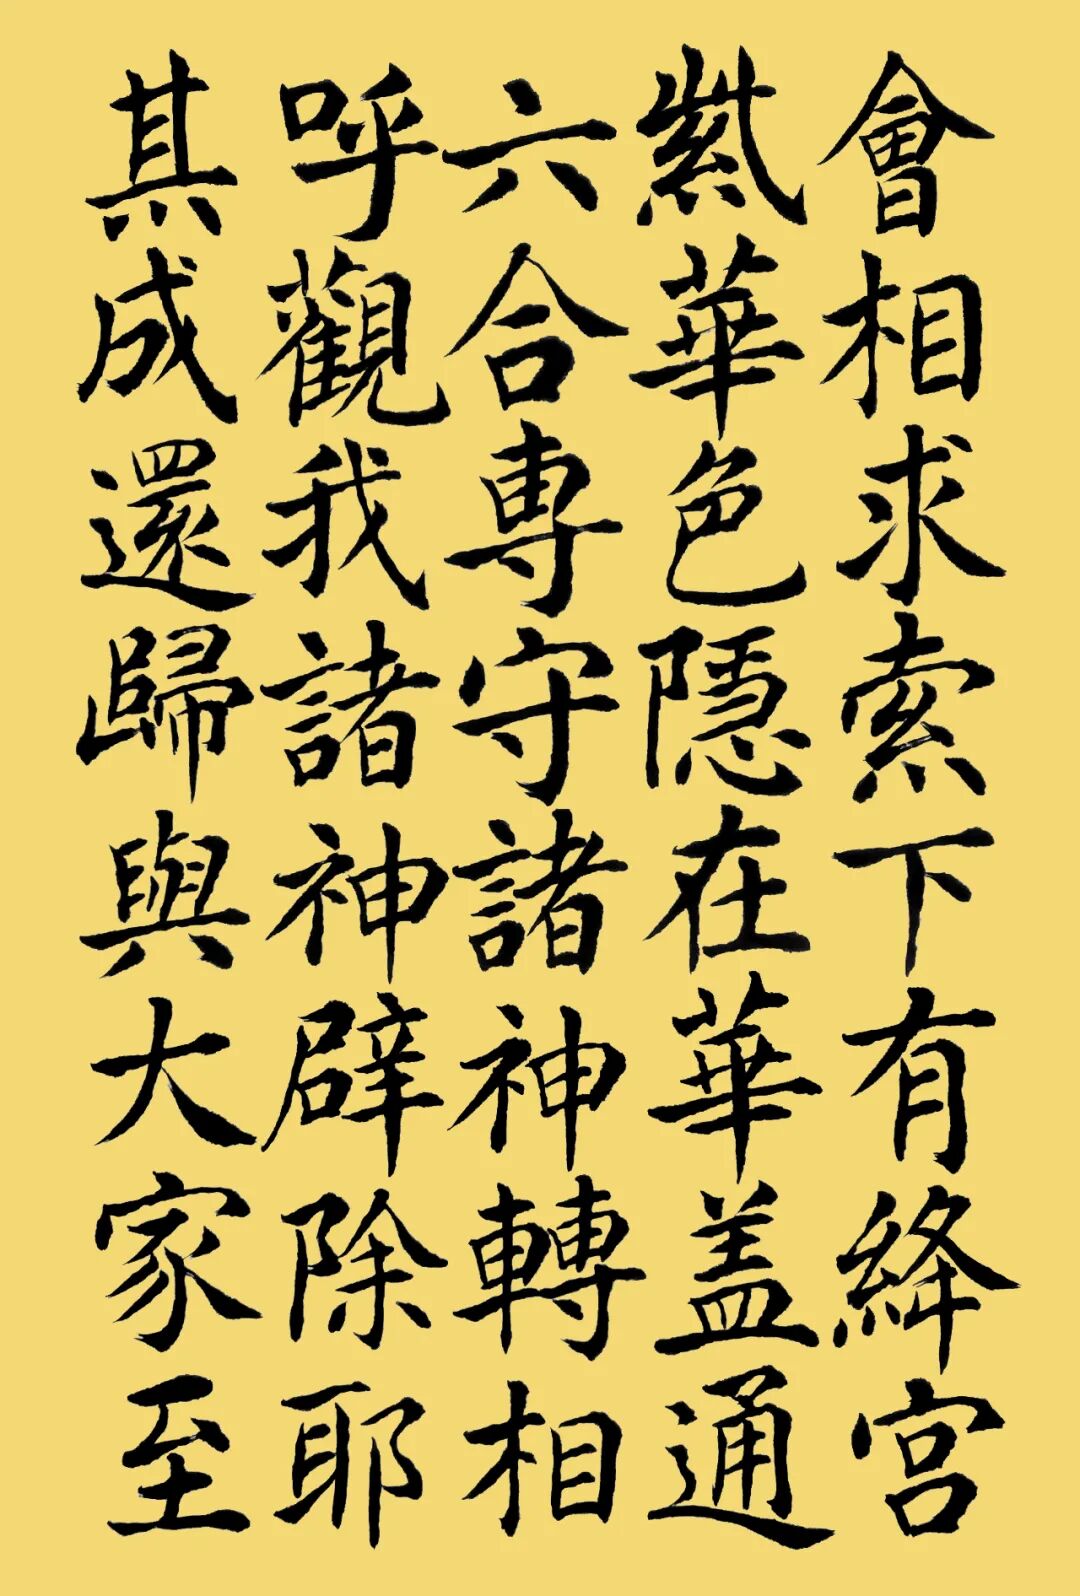 會相求索下有絳宮
紫華色隱在華盖通
六合専守諸神轉相
呼觀我諸神辟除耶
其成還歸與大家至